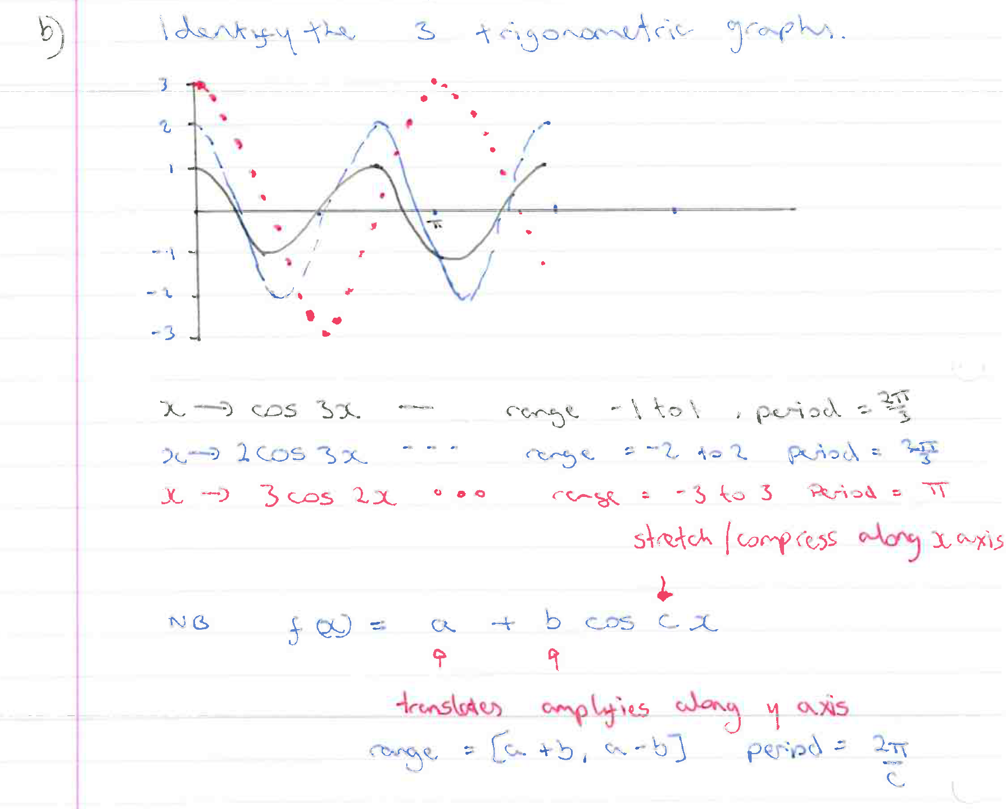 b) Identify the 3 trigonometric graphs.
3
2
1
π
-1
-2
-3
x → cos 3x — range -1 to 1 , period = 2π/3
x → 2cos 3x --- range = -2 to 2 period = 2π/3
x → 3 cos 2x ••• range = -3 to 3 Period = π
stretch / compress along x axis
NB f(x) = a + b cos c x
translates amplyfies along y axis
range = [a + b, a - b] period = 2π/c